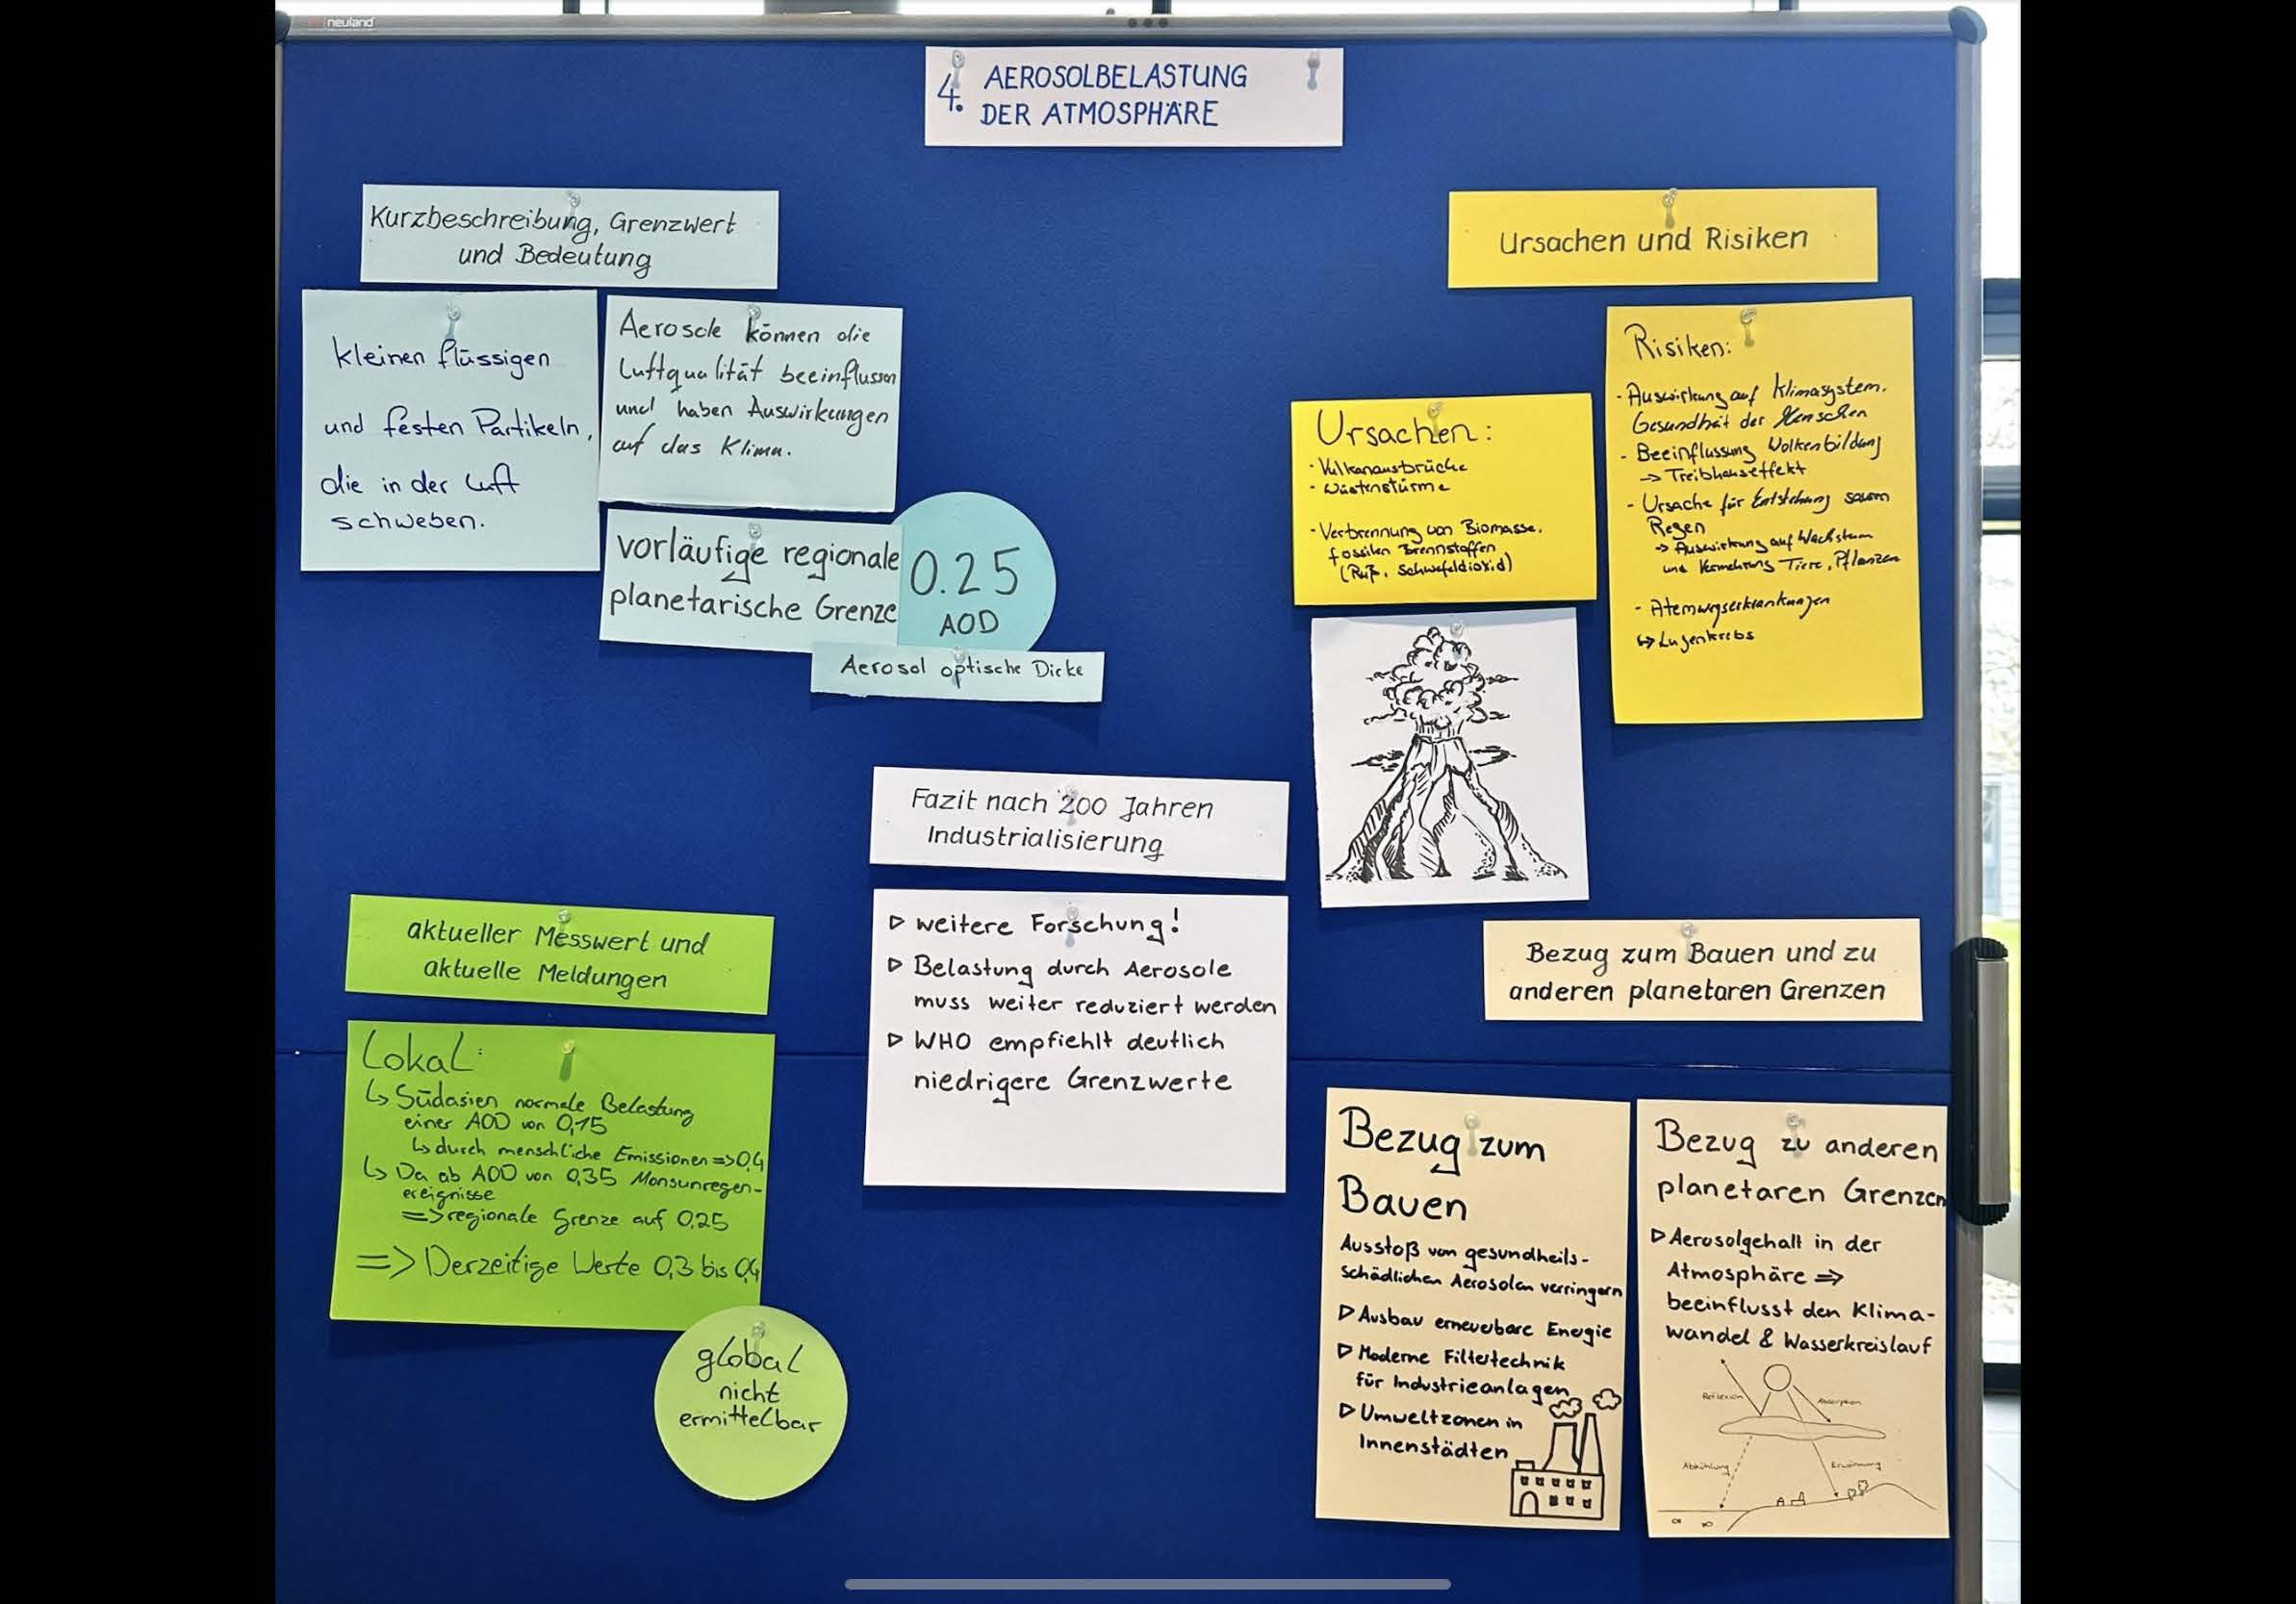 neuland
4. AEROSOLBELASTUNG
DER ATMOSPHÄRE
Kurzbeschreibung, Grenzwert
und Bedeutung
kleinen flüssigen
und festen Partikeln,
die in der Luft
schweben.
Aerosole können die
Luftqualität beeinflussen
und haben Auswirkungen
auf das Klima.
vorläufige regionale
planetarische Grenze
0.25
AOD
Aerosol optische Dicke
Ursachen und Risiken
Ursachen:
- Vulkanausbrüche
- Wüstenstürme
- Verbrennung von Biomasse.
fossilen Brennstoffen
(Ruß, Schwefeldioxid)
Risiken:
- Auswirkung auf Klimasystem.
Gesundheit der Menschen
- Beeinflussung Wolkenbildung
-> Treibhauseffekt
- Ursache für Entstehung sauren
Regen
-> Auswirkung auf Wachstum
und Vermehrung Tiere, Pflanzen
- Atemwegserkrankungen
↳> Lugenkrebs
Fazit nach 200 Jahren
Industrialisierung
▷ weitere Forschung!
▷ Belastung durch Aerosole
muss weiter reduziert werden
▷ WHO empfiehlt deutlich
niedrigere Grenzwerte
aktueller Messwert und
aktuelle Meldungen
Lokal:
↳ Südasien normale Belastung
einer AOD von 0,15
↳ durch menschliche Emissionen => 0,4
↳ Da ab AOD von 0,35 Monsunregen-
ereignisse
=> regionale Grenze auf 0,25
=> Derzeitige Werte 0,3 bis 0,4
global
nicht
ermittelbar
Bezug zum Bauen und zu
anderen planetaren Grenzen
Bezug zum
Bauen
Ausstoß von gesundheits-
schädlichen Aerosolen verringern
▷ Ausbau erneuerbare Energie
▷ Moderne Filtertechnik
für Industrieanlagen
▷ Umweltzonen in
Innenstädten
Bezug zu anderen
planetaren Grenzen
▷ Aerosolgehalt in der
Atmosphäre =>
beeinflusst den Klima-
wandel & Wasserkreislauf
Reflexion
Absorption
Abkühlung
Erwärmung